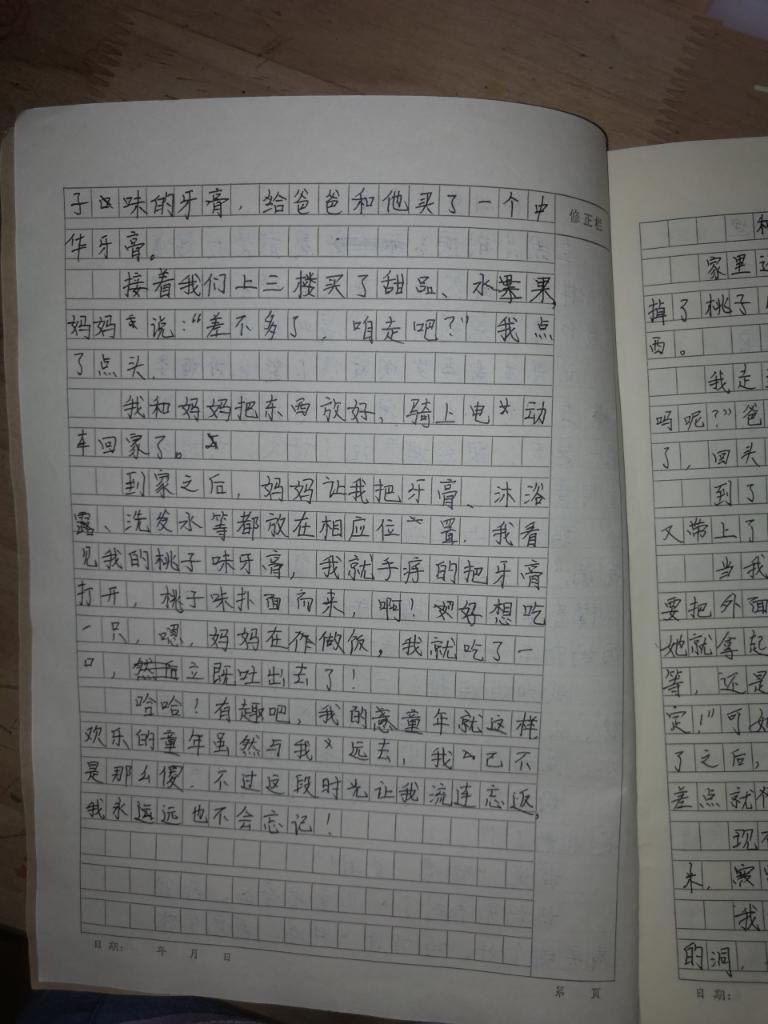 子味的牙膏，给爸爸和他买了一个中
修正栏
华牙膏。
接着我们上三楼买了甜品、水果，
妈妈说：“差不多了，咱走吧？”我点
了点头。
我和妈妈把东西放好，骑上电动
车回家了。
到家之后，妈妈让我把牙膏、沐浴
露、洗发水等都放在相应位置，我看
见我的桃子味牙膏，我就手痒的把牙膏
打开，桃子味扑面而来，啊！好想吃
一只，嗯，妈妈在作做饭，我就吃了一
口，立既吐出去了！
哈哈！有趣吧，我的童年就这样
欢乐的童年虽然与我远去，我己不
是那么傻，不过这段时光让我流连忘返，
我永远也不会忘记！
日期： 年 月 日
第 页
家里
掉了桃子
西。
我走
吗呢？”爸
了，回头
到了
又带上了
当我
要把外面
她就拿起
等，还是
定！”可
了之后，
差点就
现
来，
我
的洞，
日期：